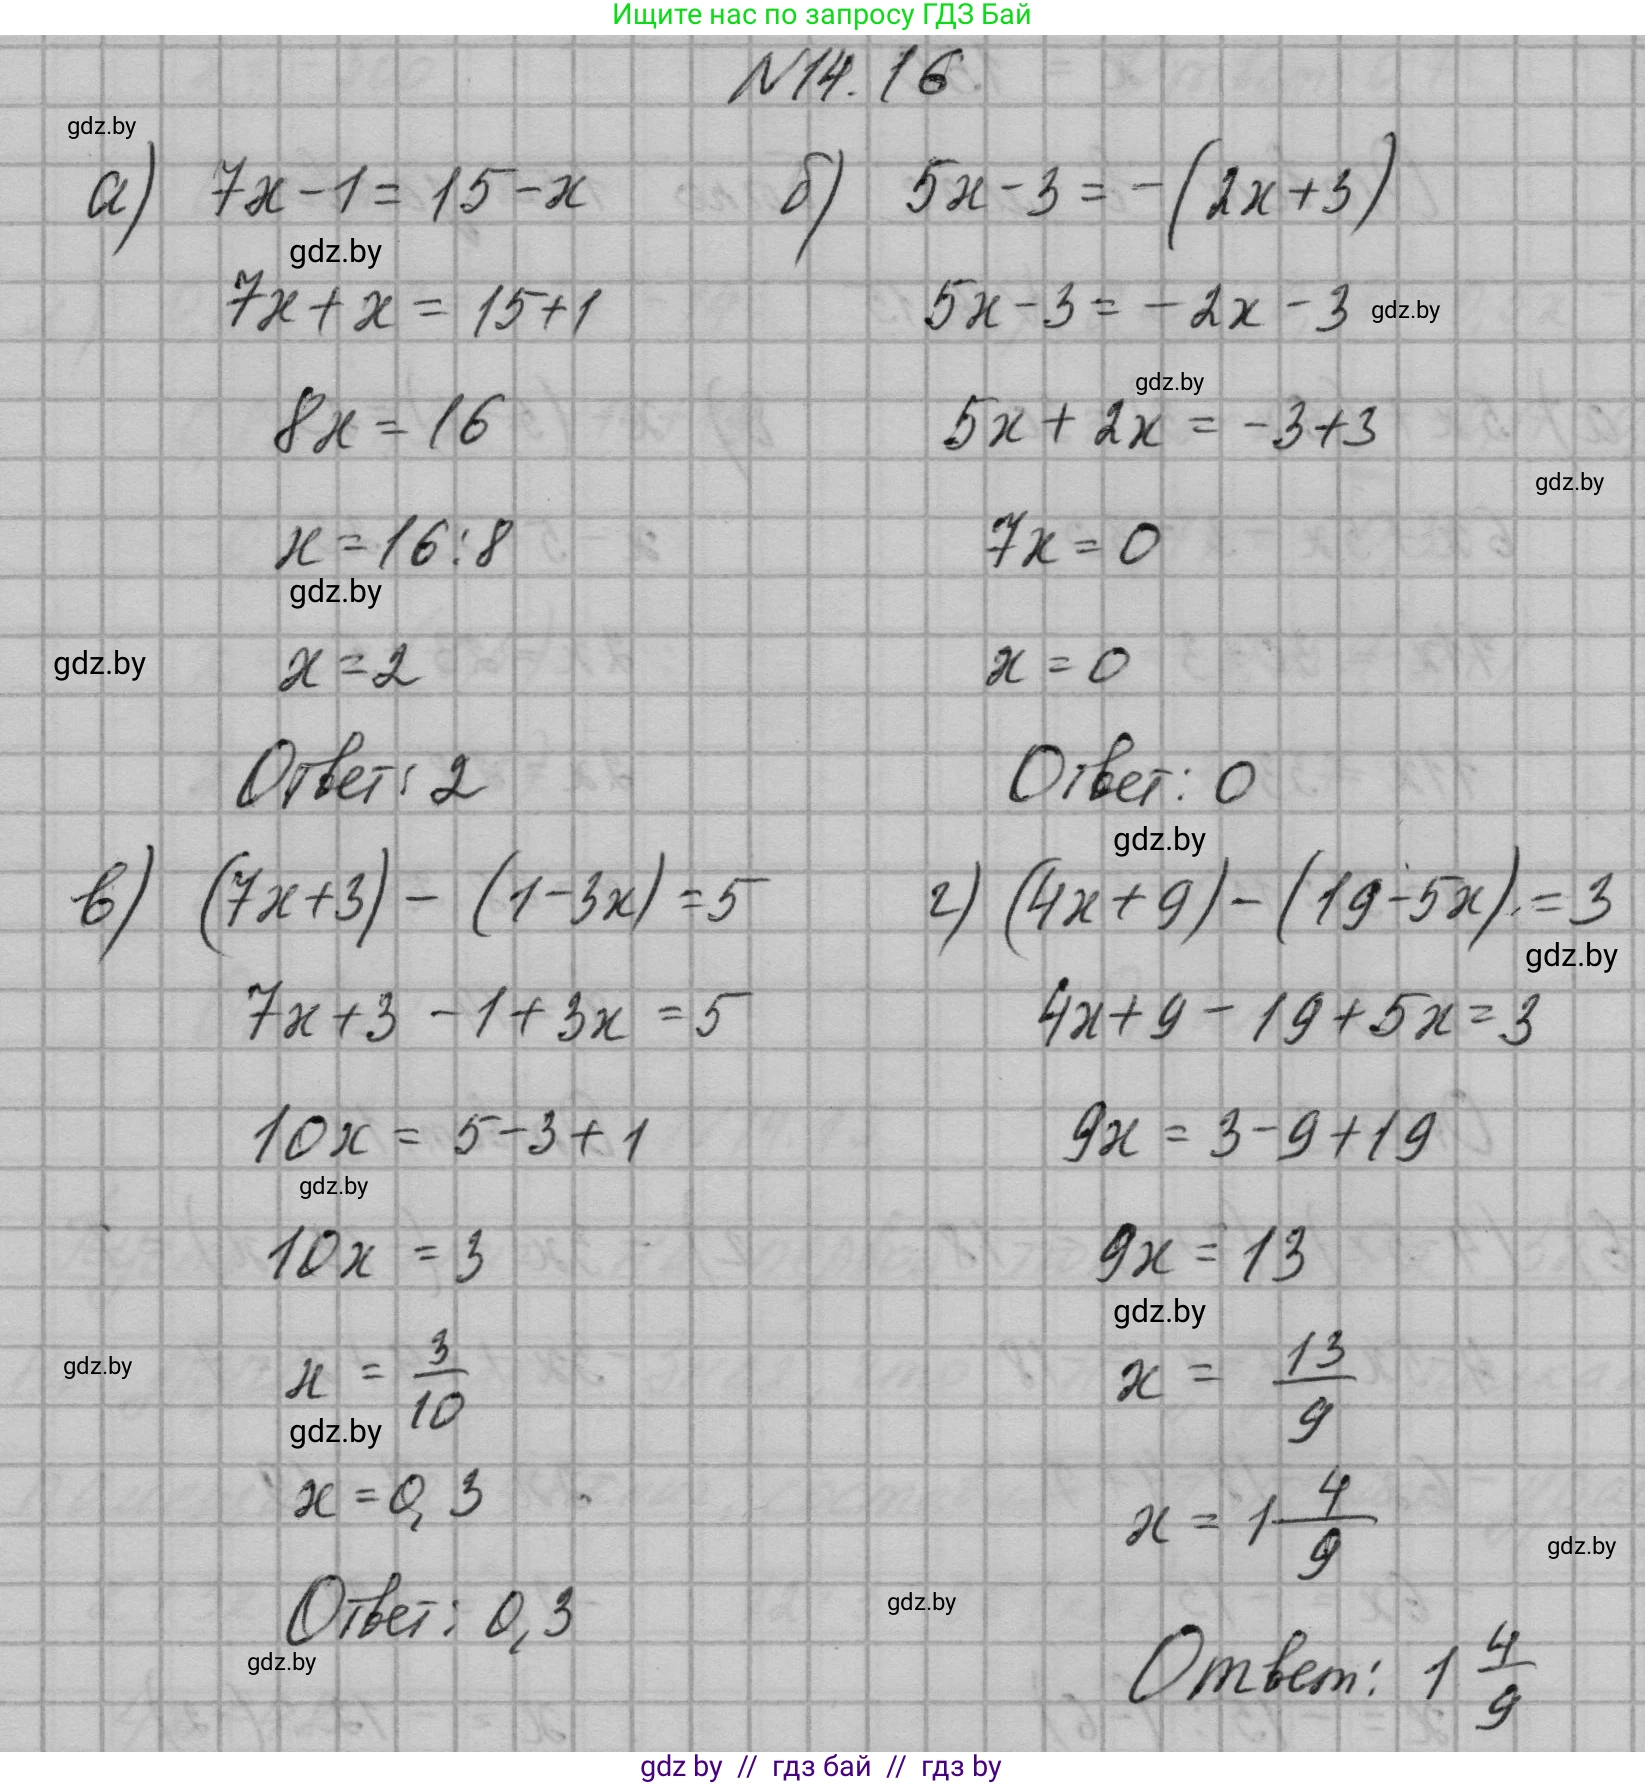 Ищите нас по запросу ГДЗ Бай
N14.16
gdz.by
а) 7x-1=15-x
gdz.by
7x+x=15+1
8x=16
x=16:8
gdz.by
gdz.by
x=2
Ответ: 2
б) 5x-3=-(2x+3)
5x-3=-2x-3 gdz.by
gdz.by
5x+2x=-3+3
gdz.by
7x=0
x=0
Ответ: 0
gdz.by
в) (7x+3)-(1-3x)=5
7x+3-1+3x=5
10x=5-3+1
gdz.by
10x=3
gdz.by
x=3/10
gdz.by
x=0,3
Ответ: 0,3
gdz.by
г) (4x+9)-(19-5x)=3
gdz.by
4x+9-19+5x=3
9x=3-9+19
9x=13
gdz.by
x=13/9
x=1 4/9
gdz.by
gdz.by
Ответ: 1 4/9
gdz by // гдз бай // гдз by